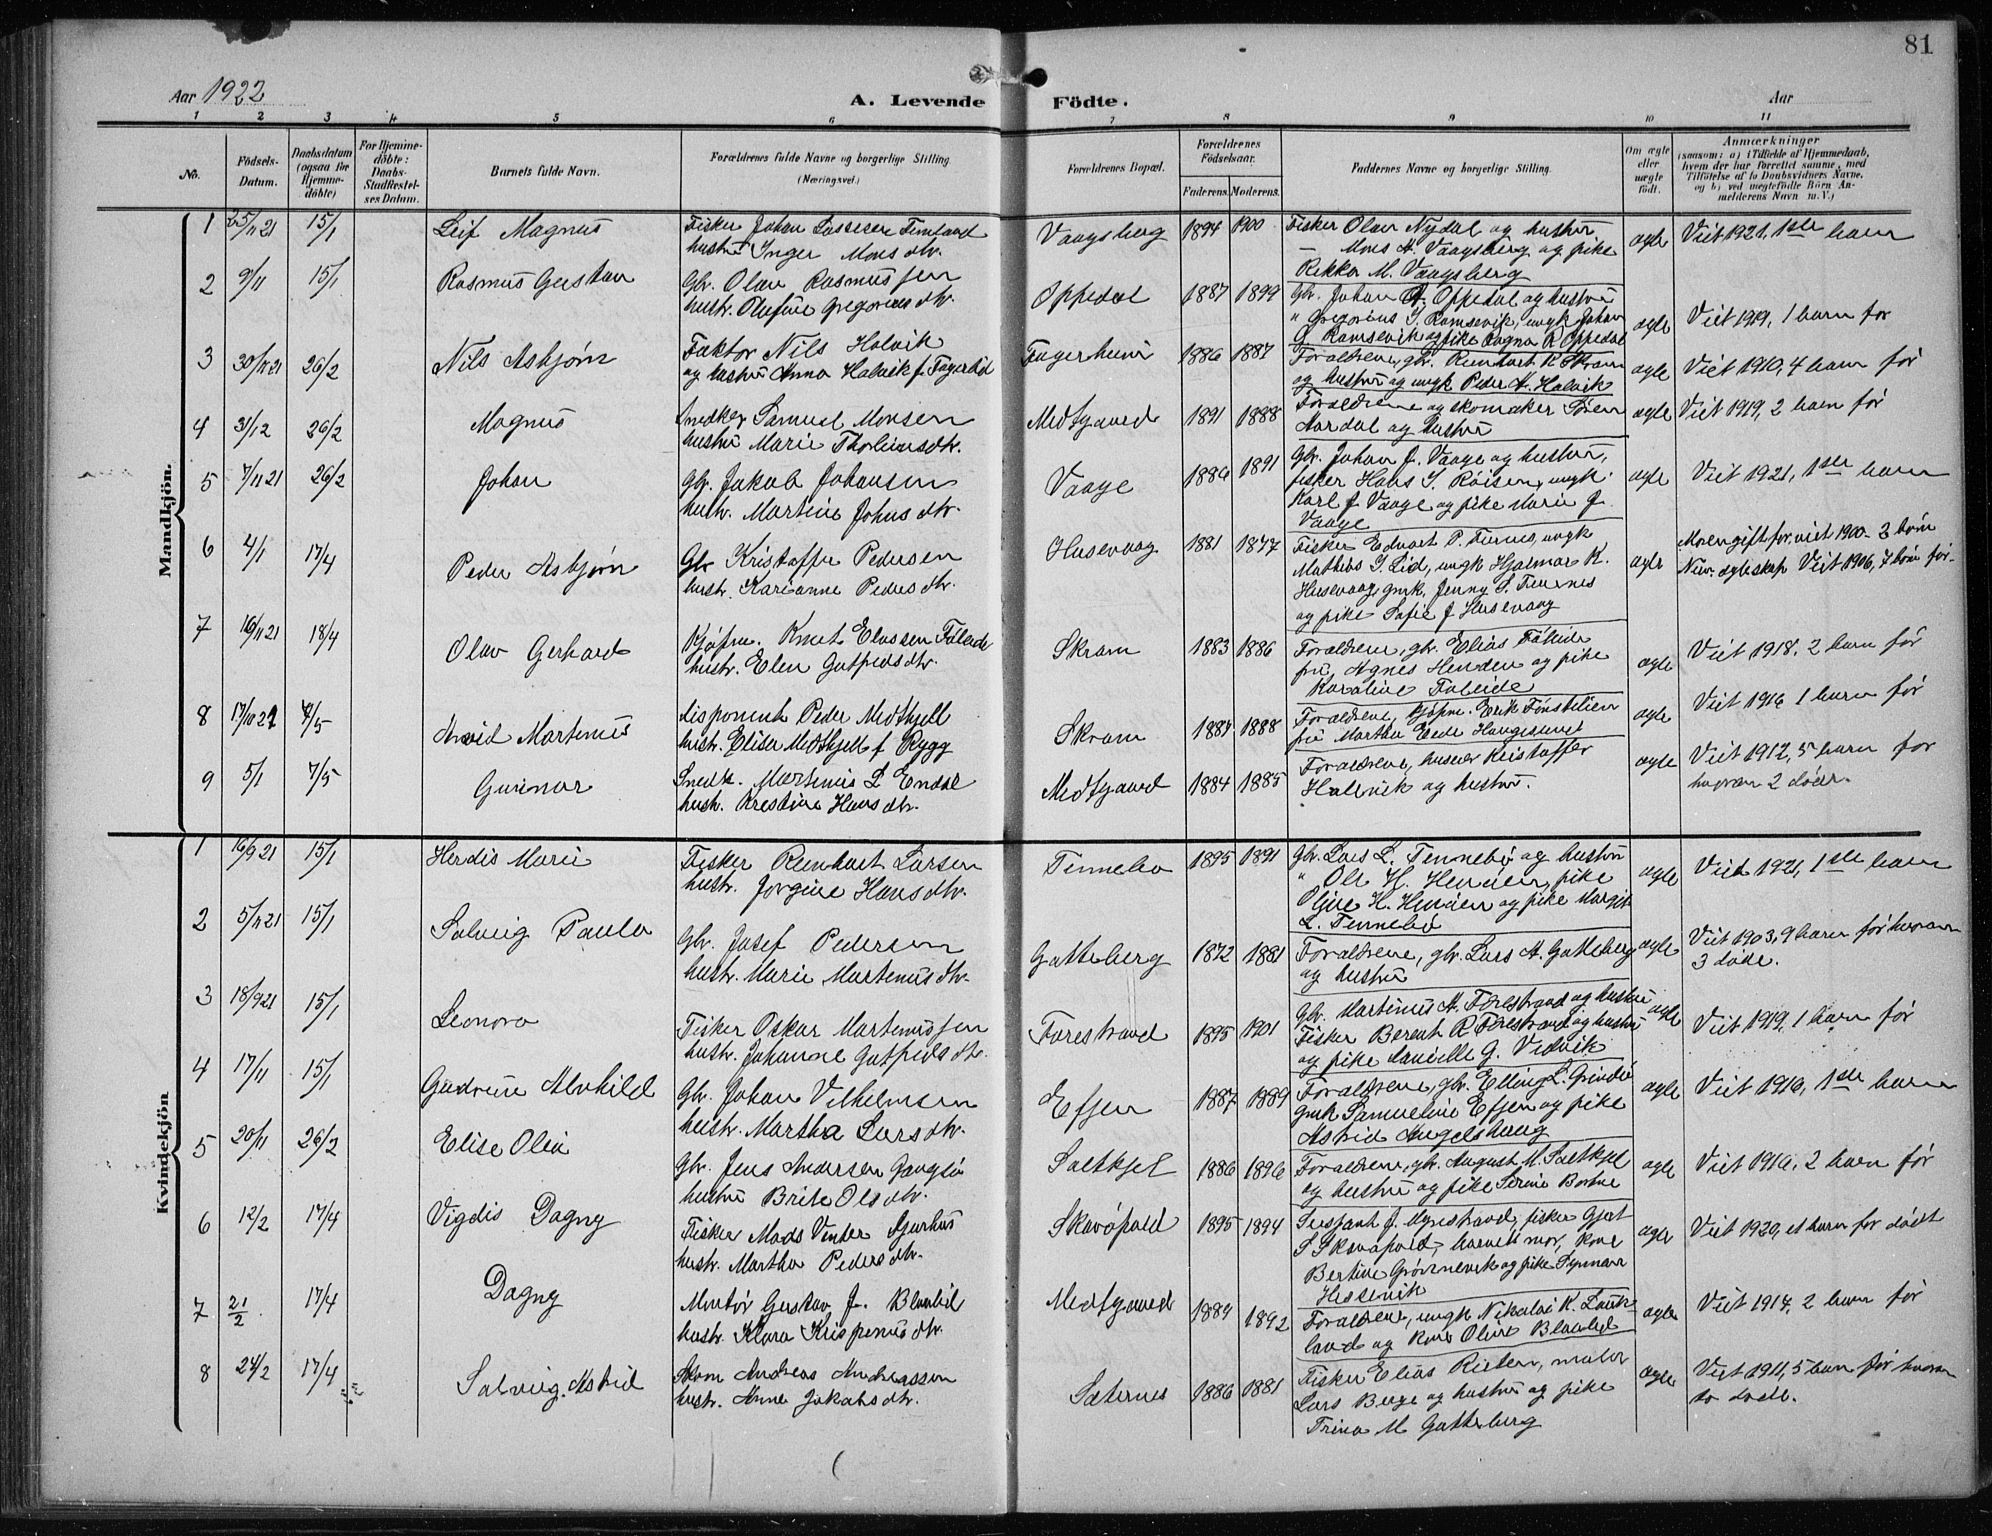 81
Aar 1922
A. Levende Födte.
Aar
1 2 3 4 5 6 7 8 9 10 11
No.
Födsels-Datum.
Daabsdatum (ogsaa för Hjemmedöbte)
For Hjemmedöbte: Daabs-Stadfæstelses Datum.
Barnets fulde Navn.
Forældrenes fulde Navne og borgerlige Stilling. (Næringsvei.)
Forældrenes Bopæl.
Forældrenes Födselsaar.
Faderens. Moderens.
Faddernes Navne og borgerlige Stilling.
Om ægte eller uægte födt.
Anmærkninger
(saasom: a) i Tilfælde af Hjemmedaab, hvem der har forrettet samme, med Tilföielse af to Daabsvidners Navne, og b) ved uægtefödte Börn Anmelderens Navn m. V.)
Mandkjön.
1 25/11 21 15/1 Leif Magnus
Fisker Johan Lassesen
hustru Inger Monsdtr.
Vaagsberg 1894 1900
Fisker Olav Nydal og hustru
— Mons A. Vaagsberg og pike
Rikka M. Vaagsberg
ægte Viet 1921, 1ste barn
2 9/11 15/1 Rasmus Gustav
Gbr. Olav Rasmussen
hustr. Olufine Gregoriusdtr.
Oppedal 1887 1899
Gbr. Johan A. Oppedal og hustru
" Gregorius S. Ramsevik, ungk. Johan
G. Ramsevik og pike Ragna R. Oppedal
ægte Viet 1919, 1 barn før
3 30/11 21 26/2 Nils Asbjørn
Faktor Nils Halvik
og hustru Anna Halvik f.
Fagerheim 1886 1887
Forældrene, gbr. Reinhart R.
og hustru og ungk Peder A. Halvik
ægte Viet 1910, 4 barn før
4 31/12 26/2 Magnus
Snedker Samuel Monsen
hustru Marie Thorleivsdtr.
Medtgaard 1891 1888
Forældrene og skomaker Søren
Aardal og hustru
ægte Viet 1919, 2 barn før
5 7/11 21 26/2 Johan
Gbr. Jakob Johansen
hustr. Martine Johnsdtr.
Vaage 1886 1891
Gbr. Johan J. Vaage og hustru,
fisker Hans S. Røisen, ungk.
Karl J. Vaage og pike Marie J.
Vaage
ægte Viet 1921, 1ste barn
6 4/1 17/4 Peder Asbjørn
Gbr Kristoffer Pedersen
hustr. Karianne Pedersdtr.
Husevaag 1881 1877
Fisker Edvart P. ungk
Mathias S. Lid, ungk Hjalmar K.
Husevaag, gmk. Jenny S.
og pike Sofie J. Husevaag
ægte
Moren gift for. viet 1900. 3 børn
Nuv. ægteskap Viet 1906, 7 børn før.
7 16/11 21 18/4 Olav Gerhard
Kjøpm. Knut Elassen Faleide
hustr. Elen Gotfredsdtr.
Skram 1883 1886
Forældrene, gbr. Elias Faleide
fru Agnes Henden og pike
Karoline Faleide
ægte Viet 1918. 2 barn før
8 17/10 21 4/5 Arvid Martenus
disponent Peder Medthjell
hustr. Elise Medthjell f. Rygg
Skram 1884 1888
Forældrene, kjøpm. Erik
fru Martha Eide
ægte Viet 1916 1 barn før
9 5/1 7/5 Gunnar
Snedk. Martenus L. Endal
hustr. Kristine Hansdtr.
Medtgaard 1884 1885
Forældrene, huseier Kristoffer
Halsvik og hustru.
ægte Viet 1912, 5 barn før
hvorav 2 døde.
Kvindekjön
1 16/9 21 15/1 Herdis Marie
Fisker Reinhart Larsen
hustr. Jørgine Hansdtr.
Tennebø 1895 1891
Gbr. Lars L. Tennebø og hustru
" Ole H. Henden, pike
Oline H. Henden og pike Margit
L. Tennebø
ægte Viet 1921, 1ste barn
2 5/11 21 15/1 Solveig Paula
Gbr. Josef Pedersen
hustr. Marie Martenusdtr.
Gotteberg 1872 1881
Forældrene, gbr. Lars A. Gotteberg
og hustru
ægte Viet 1903, 9 barn før hvorav
3 døde.
3 18/9 21 15/1 Leonora
Fisker Oskar Martenussen
hustr. Johanne Gotfredsdtr.
Færestrand 1895 1901
Gbr. Martinus A. Færestrand og hustru
Fisker Berent R. Færestrand og hustru
og pike G. Vedvik
ægte Viet 1919, 1 barn før
4 17/11 15/1 Gudrun Alvhild
Gbr. Johan Vilhelmsen
hustr. Martha Larsdtr.
Efjen 1887 1889
Forældrene, gbr. Elling L. Grinde
gmk Samueline Efjen og pike
Astrid Angelshaug
ægte Viet 1916, 1ste barn
5 20/11 26/2 Elise Olea
Gbr. Jens Andersen
hustru Brite Olsdtr.
Saltkjel 1886 1896
Forældrene, gbr. August M. Saltkjel
og hustru og pike
ægte Viet 1916, 2 barn før
6 12/2 17/4 Vigdis Dagny
Fisker Mads
hustr. Martha Pedersdtr.
Skavøpold 1895 1894
J. Mynestrand, fisker
S Skavøpold, barnets mor, kone
Bertine og pike
Hessevik
ægte Viet 1920, et barn før dødt
7 21/2 17/4 Dagny
Montør Gustav J. Blaalid
hustr. Klara Krispenusdtr.
Medtgaard 1889 1892
Forældrene, ungk Nikolai K.
og kone Blaalid
ægte Viet 1914, 2 barn før
8 24/2 17/4 Solveig Astrid
Skom Andreas Andreassen
hustr. Anne Jakobsdtr.
Sæternes 1886 1881
Fisker Elias maler
Lars Berge og hustru og pike
Trina M. Gotteberg
ægte Viet 1911, 5 barn før hvorav
to døde.